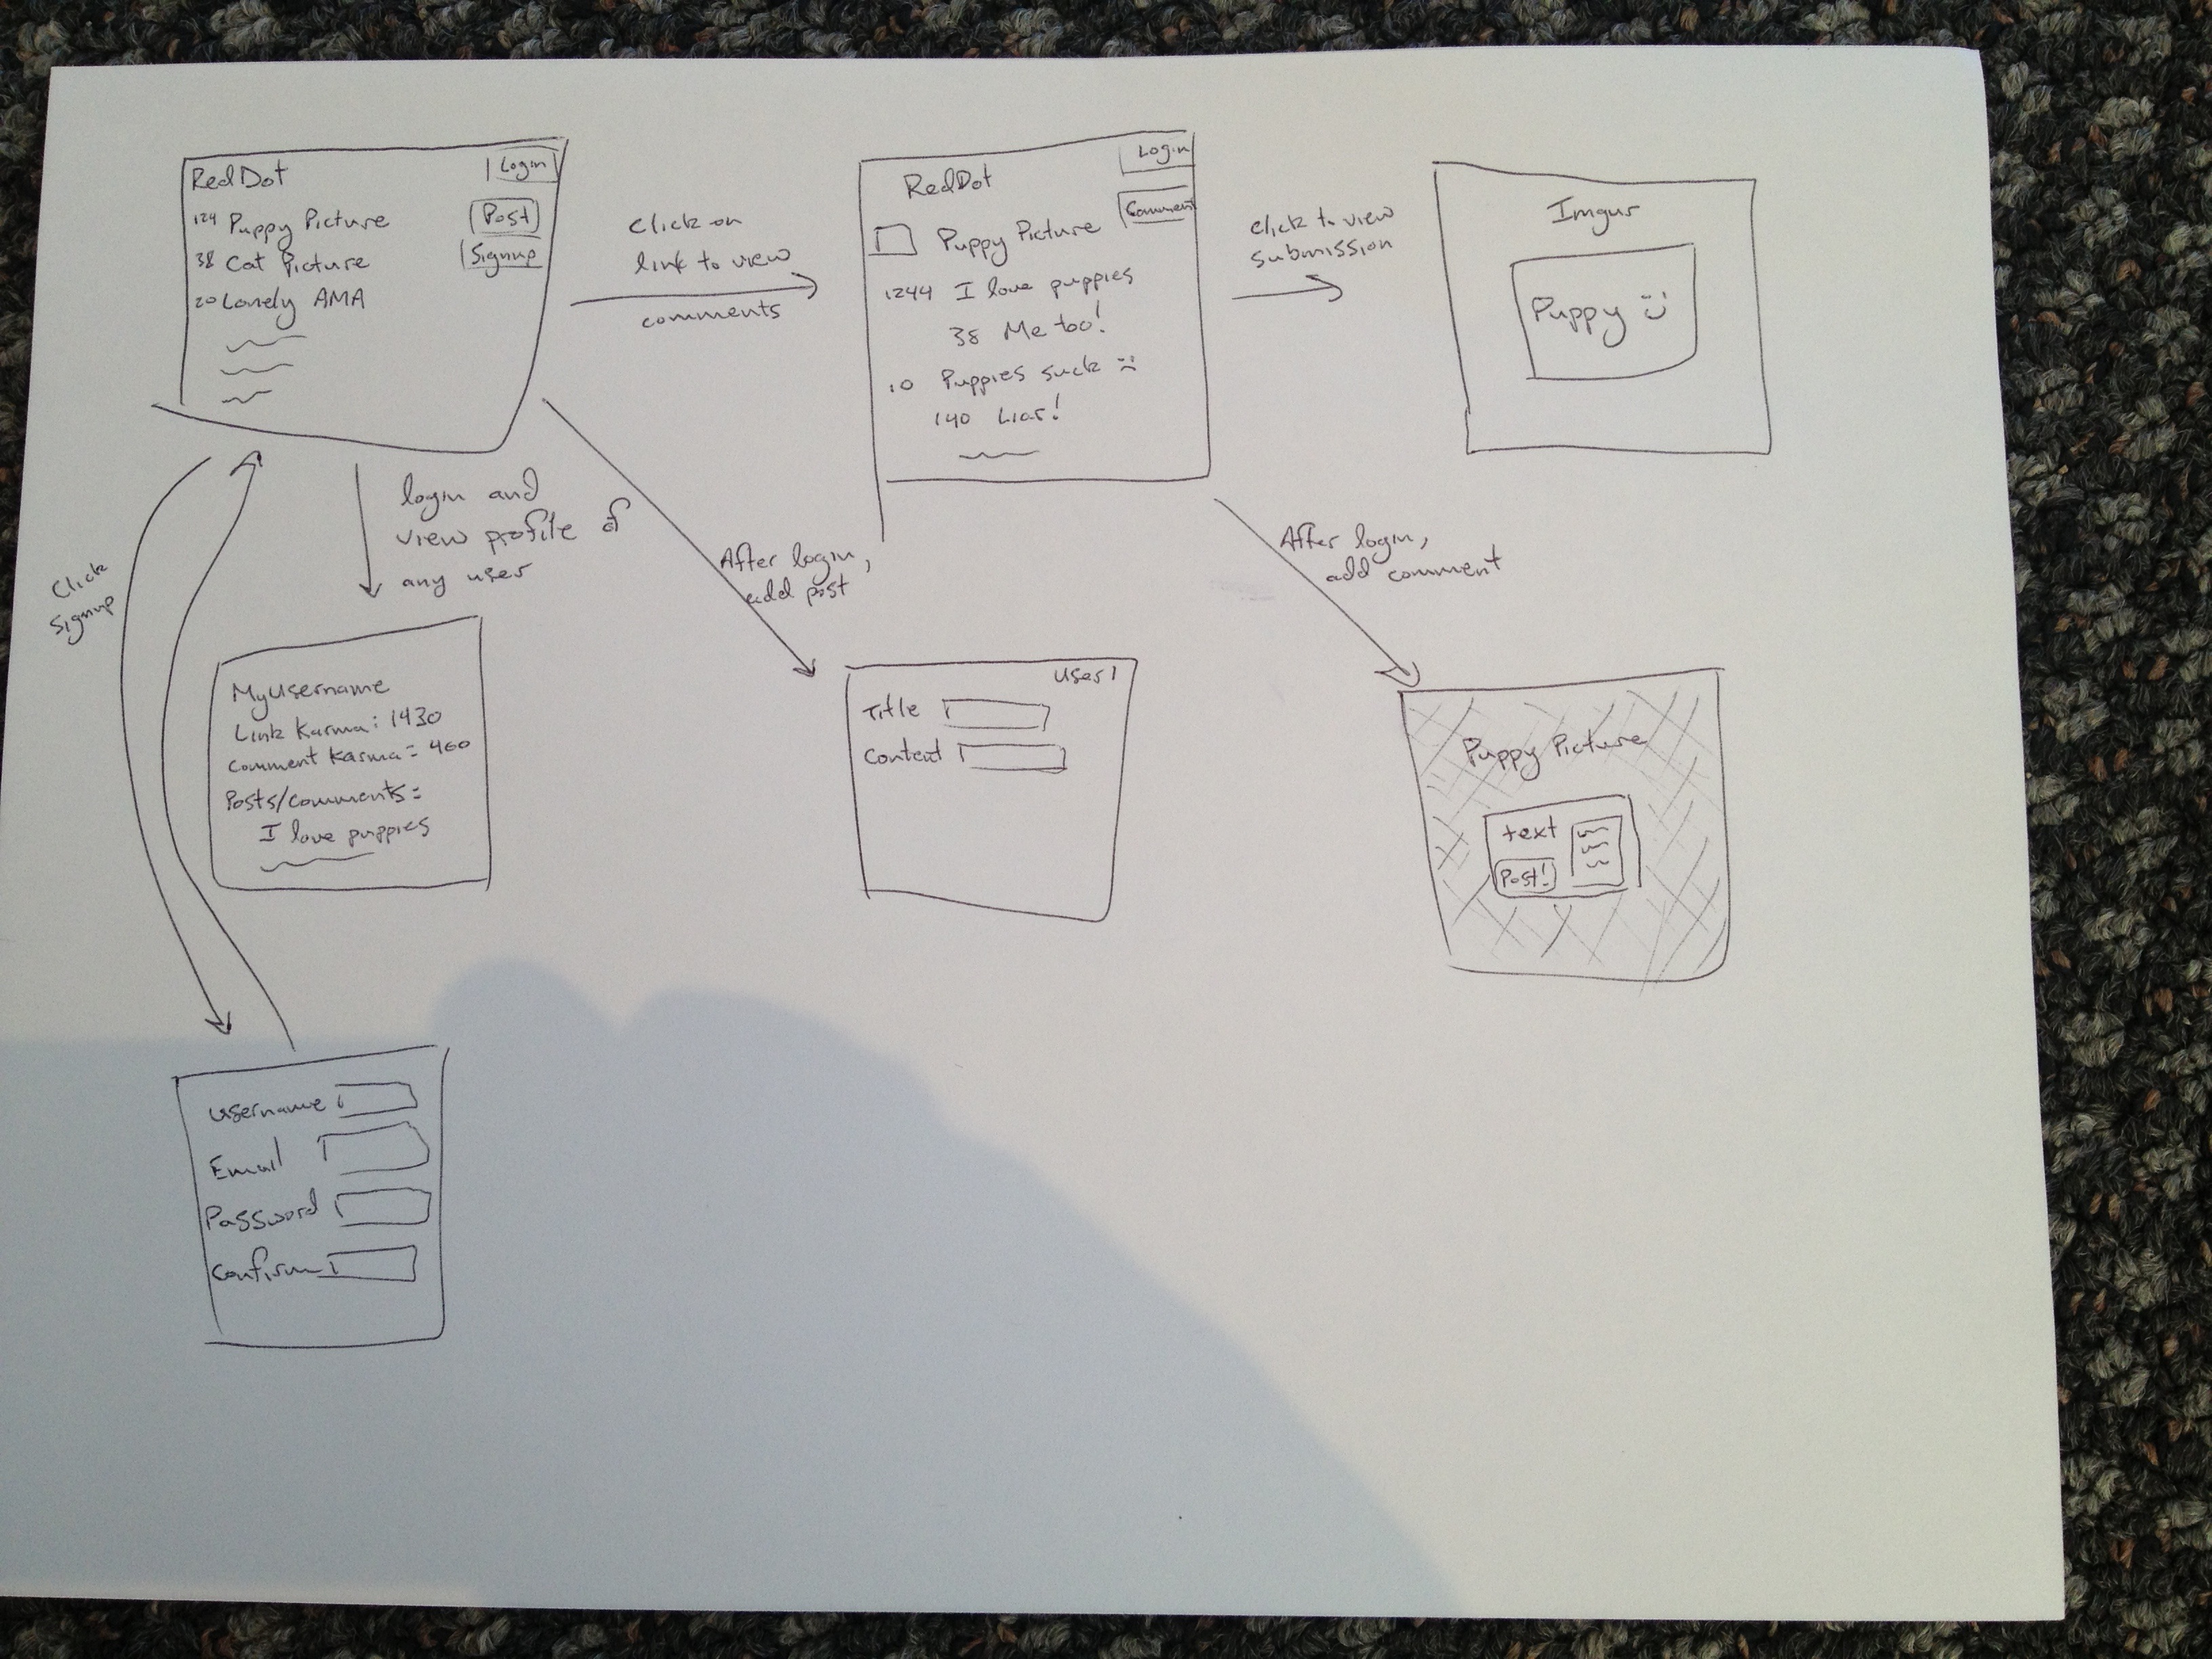 RedDot
Login
124 Puppy Picture
Post
38 Cat Picture
Signup
20 Lonely AMA
Click on
link to view
comments
RedDot
Login
Comment
Puppy Picture
1244 I love puppies
38 Me too!
10 Puppies suck :(
140 Liar!
click to view
submission
Imgur
Puppy :)
Click
Signup
login and
view profile of
any user
After login,
add post
After login,
add comment
MyUsername
Link Karma: 1430
Comment Karma: 460
Posts/comments:
I love puppies
User1
Title
Content
Puppy Picture
text
Post!
Username
Email
Password
Confirm